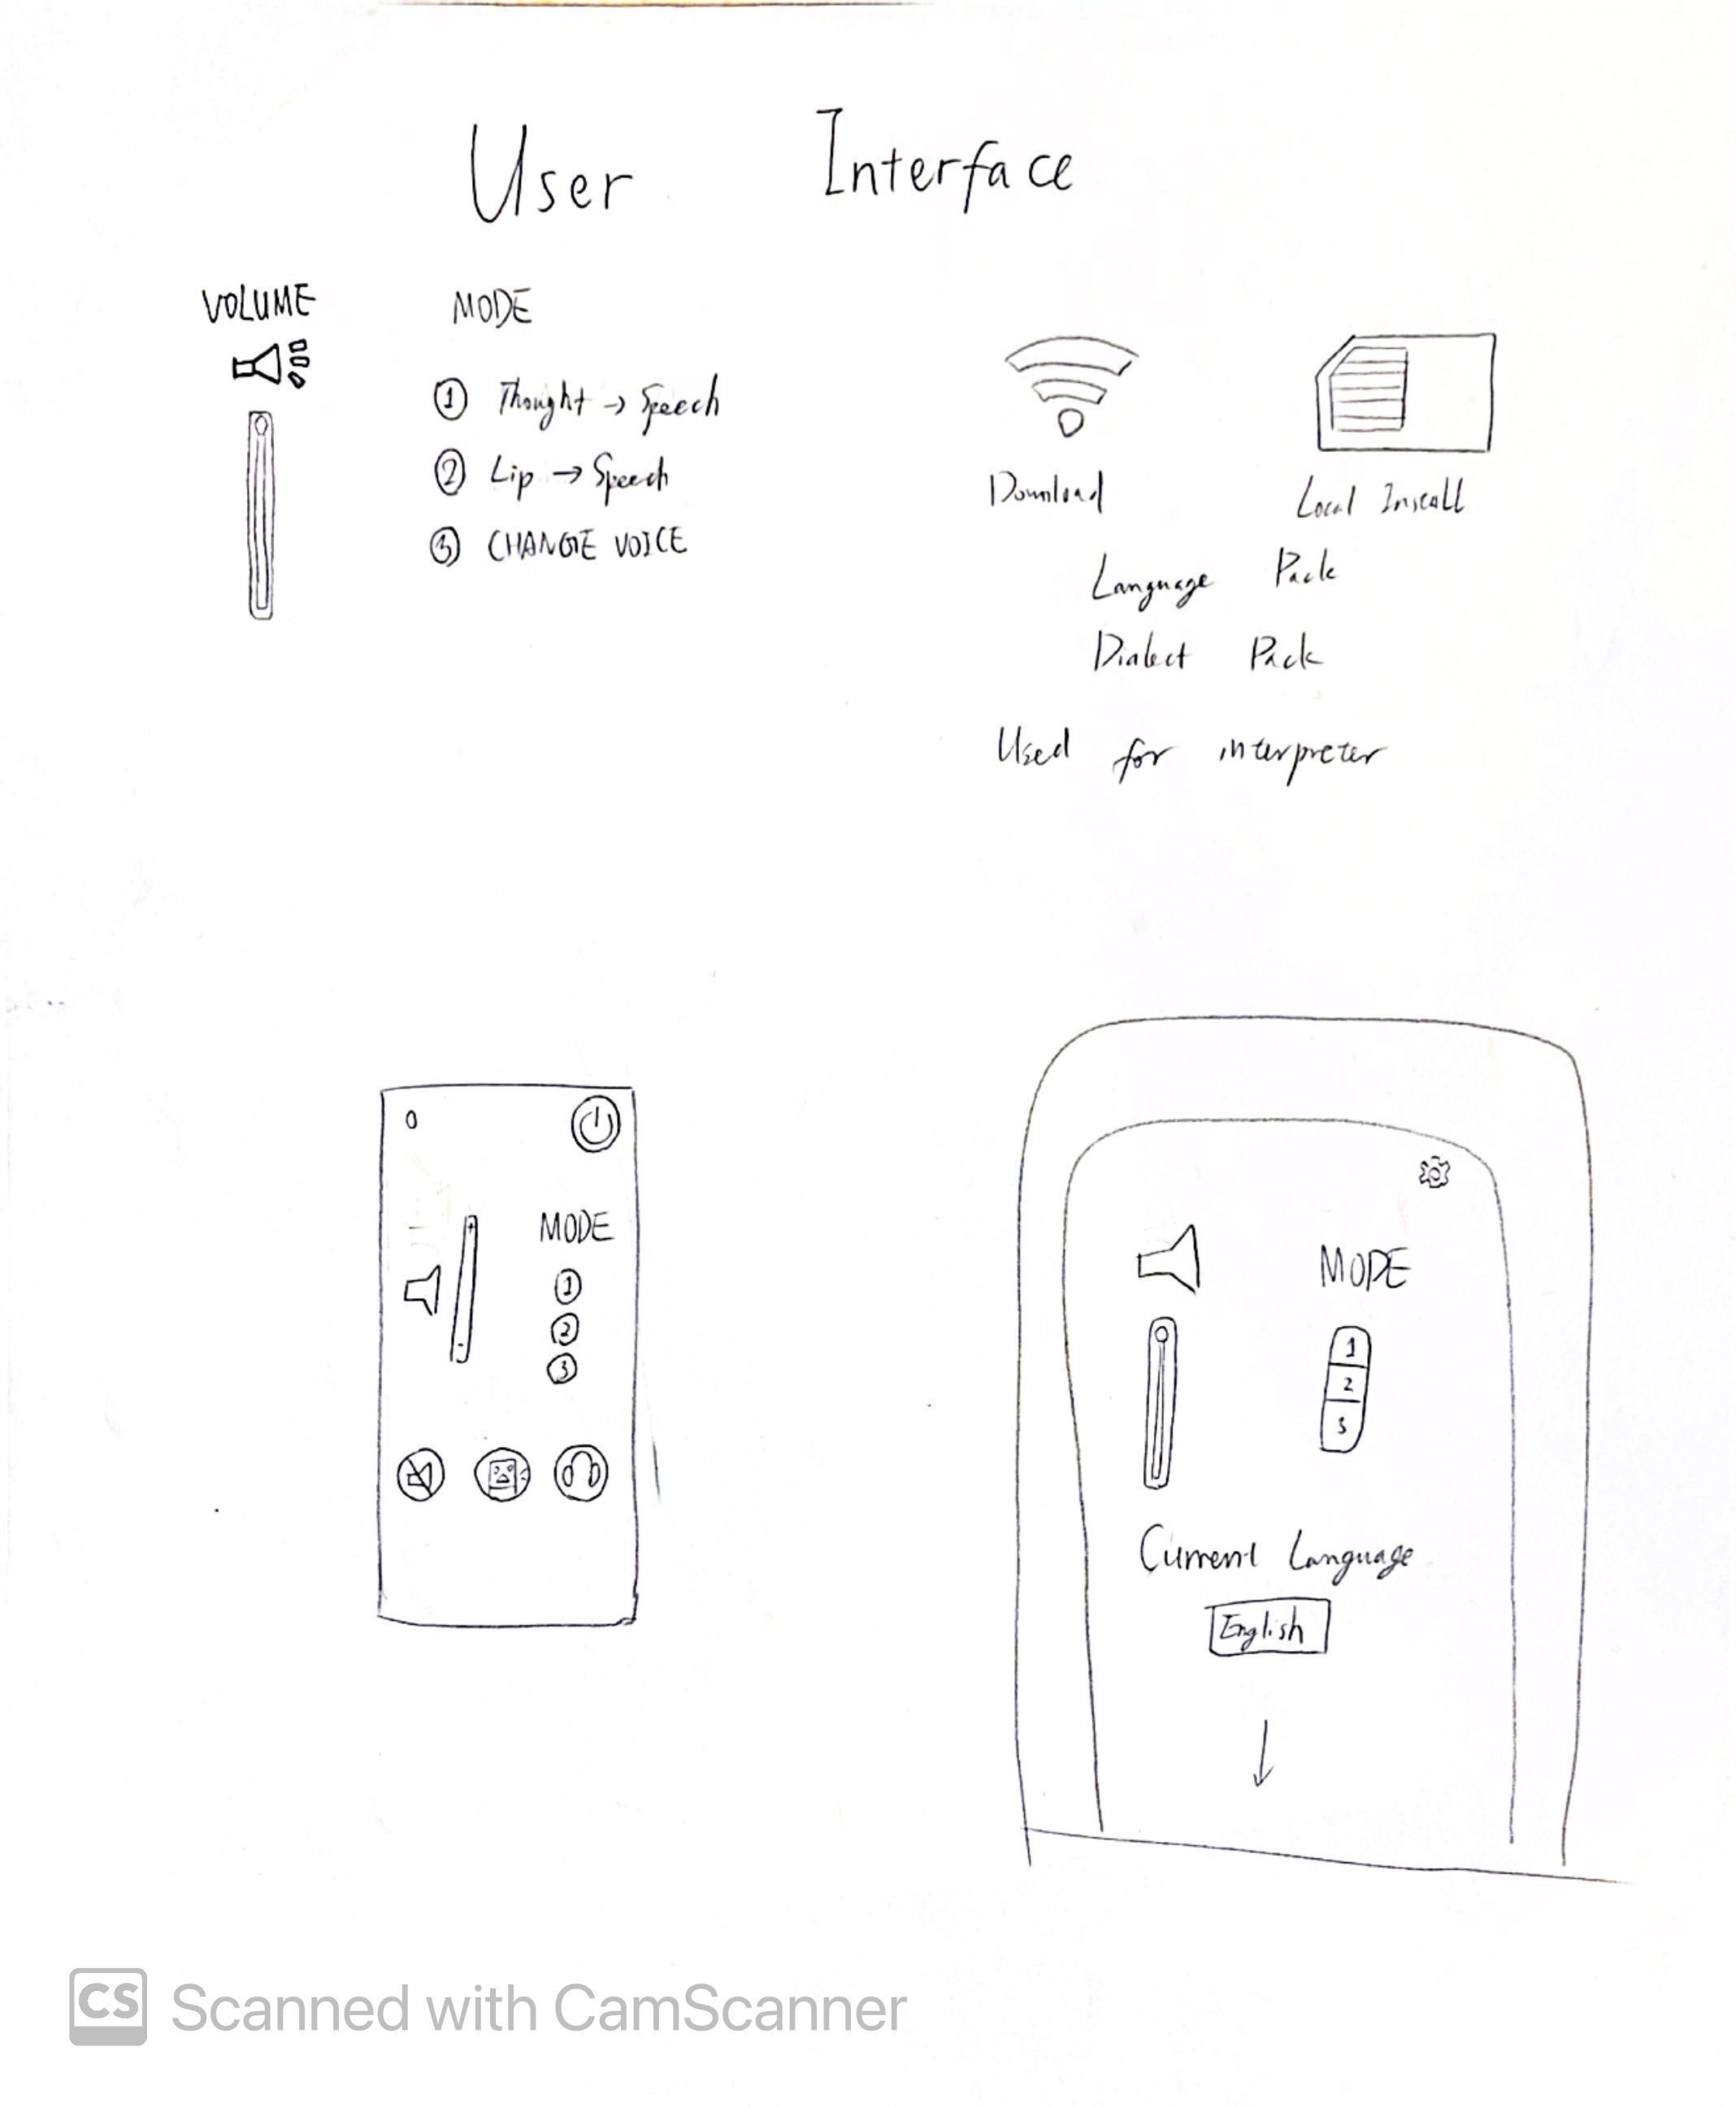 User Interface
VOLUME
MODE
① Thought → Speech
② Lip → Speech
③ CHANGE VOICE
Download
Local Install
Language Pack
Dialect Pack
Used for interpreter
+
-
MODE
①
②
③
MODE
1
2
3
Current Language
English
CS Scanned with CamScanner